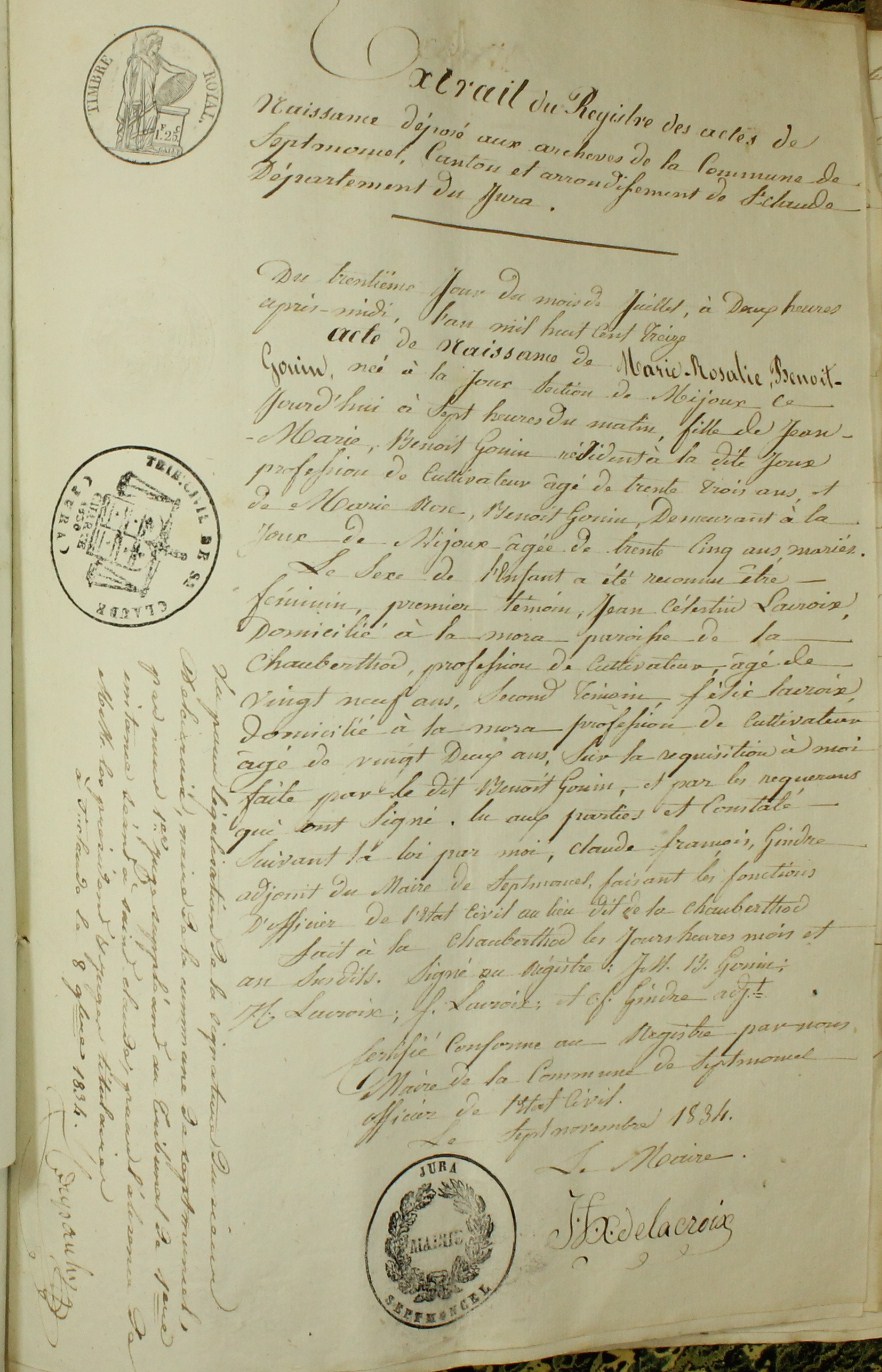 TIMBRE ROYAL.
Extrait du Registre des actes de
Naissance déposé aux archeves de la Commune de
Septmoncel, Canton et arrondissement de St claude
Département du Jura.
Du trentiëme Jour du mois de Juillet, à Deux heures
après-midi, l'an mil huit Cent Treize
Acte de Naissance de Marie-Rosalie, Benoit-
Gonin, neé à la Joux Section de Mijoux ce
Jourd'hui à Sept heures du matin, fille de Jean-
-Marie, Benoit Gonin résident à la dite Joux
profession de Cultivateur âgé de trente trois ans, et
de Marie Rose, Benoit Gonin, Demeurant à la
Joux de Mijoux âgée de trente Cinq ans, mariés.
Le Sexe de l'Enfant a été reconnu être
féminin, premier témoin, Jean Célestin Lacroix,
Domicilié à la mora paroisse de la
Chauberthod, profession de Cultivateur, âgé de
vingt neuf ans, Second Témoin, félix Lacroix,
domicilié à la mora profession de Cultivateur
âgé de vingt Deux ans, Sur la requisition à moi
faite par le dit Benoit Gonin, et par les requerans
qui ont Signé. lu aux parties et Constaté
Suivant la loi par moi, Claude françois, Gindre
adjoint du Maire de Septmoncel, faisant les fonctions
D'officier de l'Etat Civil au lieu dit de la Chauberthod
Fait à la Chauberthod les Jours heures mois et
an Susdits. Signé au Régistre: J.M. B. Gonin;
Lacroix; f. Lacroix; et Cf. Gindre adjt
Certifié Conforme au Registre par nous
Maire de la Commune de Septmoncel
officier de l'Etat Civil.
Le Sept novembre 1834.
Le Maire.
J.F.X. delacroix
JURA
MAIRIE
SEPTMONCEL
TRIB. CIVIL DE ST CLAUDE
(JURA)
CHARTE
1830
Vu pour légalisation de la signature du sieur
Delacroix, maire de la commune de septmoncel,
par nous 1er juge suppléant au Tribunal de 1ere
instance séant à saint claude, vacant l'absence de
MM. les président et juges titulaires
à St claude le 8 9bre 1834.